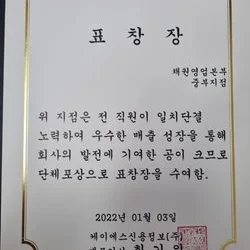 표 창 장
채권영업본부
중부지점
위 지점은 전 직원이 일치단결
노력하여 우수한 매출 성장을 통해
회사의 발전에 기여한 공이 크므로
단체포상으로 표창장을 수여함.
2022년 01월 03일
케이에스신용정보(주)